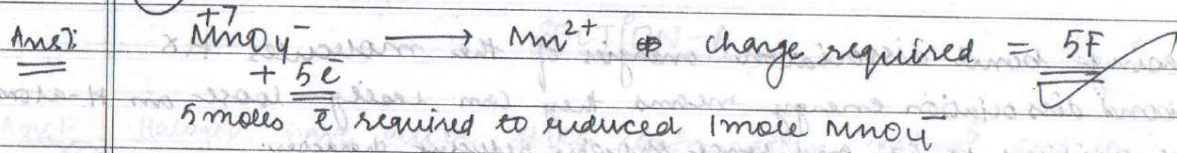 +7
Ans7: MnO4⁻ ⟶ Mn²⁺ charge required = 5F
+ 5e⁻
5 moles e⁻ required to reduced 1 mole MnO4⁻